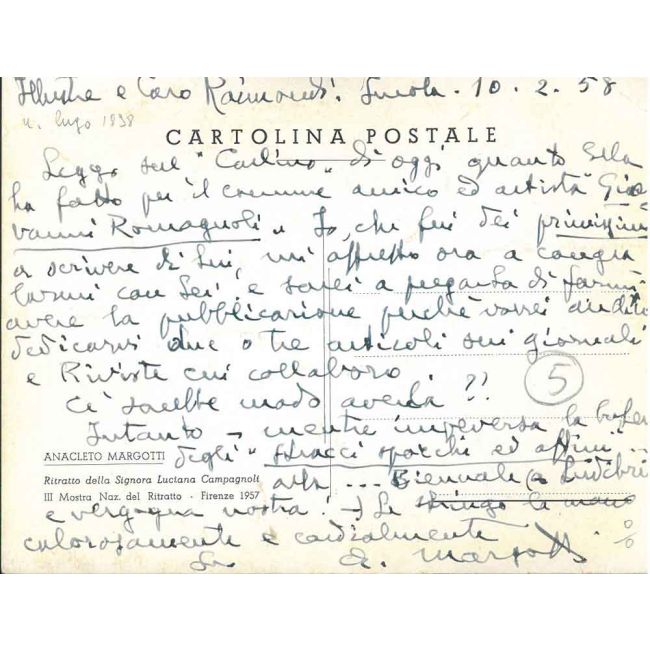 Illustre e Caro Raimondi. Imola. 10. 2. 58
n. Lugo 1898
CARTOLINA POSTALE
Leggo sul "Carlino" di oggi quanto Ella
ha fatto per il comune amico ed artista "Gio-
vanni Romagnoli" Io, che fui dei primissimi
a scrivere di Lui, mi affretto ora a congra
tularmi con Lei, e sarei a pregarLa di farmi
avere la pubblicazione perché vorrei
dedicarvi due o tre articoli sui giornali
e Riviste cui collaboro
Ci sarebbe modo averla ??
5
Intanto - mentre imperversa la bufera
ANACLETO MARGOTTI
degli "stracci sporchi ed affini" ..
Ritratto della Signora Luciana Campagnoli
III Mostra Naz. del Ritratto - Firenze 1957
... Biennale (a Ludibri
e vergogna nostra!) Le stringo la mano
calorosamente e cordialmente
Suo A. Margotti